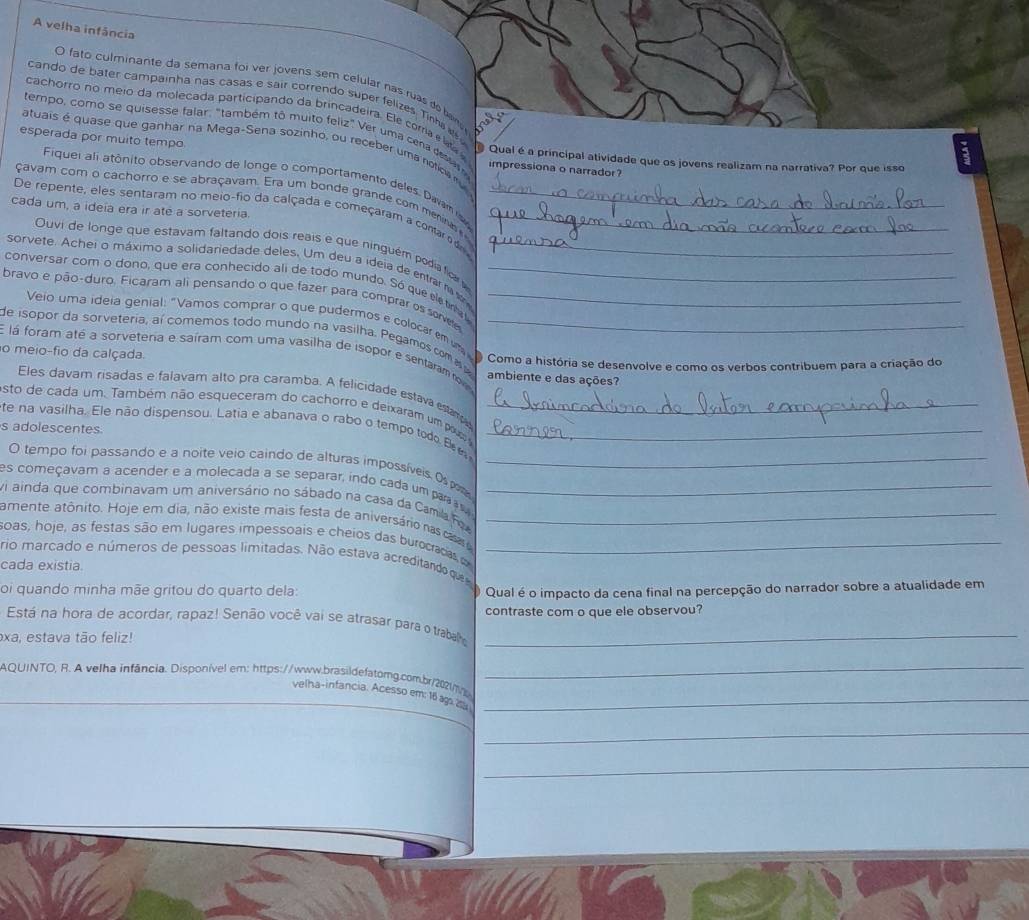 A velha infância
O fato culminante da semana foi ver jovens sem celular nas ruas do
cando de bater campainha nas casas e sair correndo super felizes. Tinha até
cachorro no meio da molecada participando da brincadeira. Ele corria e
tempo, como se quisesse falar: "também tô muito feliz". Ver uma cena dessas
atuais é quase que ganhar na Mega-Sena sozinho, ou receber uma notícia
esperada por muito tempo.
Fiquei ali atônito observando de longe o comportamento deles. Davam
çavam com o cachorro e se abraçavam. Era um bonde grande com meninas e
De repente, eles sentaram no meio-fio da calçada e começaram a contar o
cada um, a ideia era ir até a sorveteria.
Ouvi de longe que estavam faltando dois reais e que ninguém podia ficar
sorvete. Achei o máximo a solidariedade deles. Um deu a ideia de entrar na
conversar com o dono, que era conhecido ali de todo mundo. Só que ele tinha
bravo e pão-duro. Ficaram ali pensando o que fazer para comprar os sorvetes.
Veio uma ideia genial: "Vamos comprar o que pudermos e colocar em uma
de isopor da sorveteria, aí comemos todo mundo na vasilha. Pegamos com as
E lá foram até a sorveteria e saíram com uma vasilha de isopor e sentaram
o meio-fio da calçada.
Eles davam risadas e falavam alto pra caramba. A felicidade estava
sto de cada um. Também não esqueceram do cachorro e deixaram um pouco
te na vasilha. Ele não dispensou. Latia e abanava o rabo o tempo todo. Ele era
s adolescentes.
O tempo foi passando e a noite veio caindo de alturas impossíveis. Os
es começavam a acender e a molecada a se separar, indo cada um para a
vi ainda que combinavam um aniversário no sábado na casa da Camila. Fiquei
amente atônito. Hoje em dia, não existe mais festa de aniversário nas casas
soas, hoje, as festas são em lugares impessoais e cheios das burocracias,
rio marcado e números de pessoas limitadas. Não estava acreditando que
cada existia.
oi quando minha mãe gritou do quarto dela:
Está na hora de acordar, rapaz! Senão você vai se atrasar para o trabalho
oxa, estava tão feliz!
AQUINTO, R. A velha infância. Disponível em: https://www.brasildefatomg.com.br/2021/11/
velha-infancia. Acesso em: 16 ago. 2024
AULA 4
Qual é a principal atividade que os jovens realizam na narrativa? Por que isso
impressiona o narrador?
a campainha das casa do Por
que hagem em dia não acontece com
quensa
Como a história se desenvolve e como os verbos contribuem para a criação do
ambiente e das ações?
do campainha e
Correr.
Qual é o impacto da cena final na percepção do narrador sobre a atualidade em
contraste com o que ele observou?